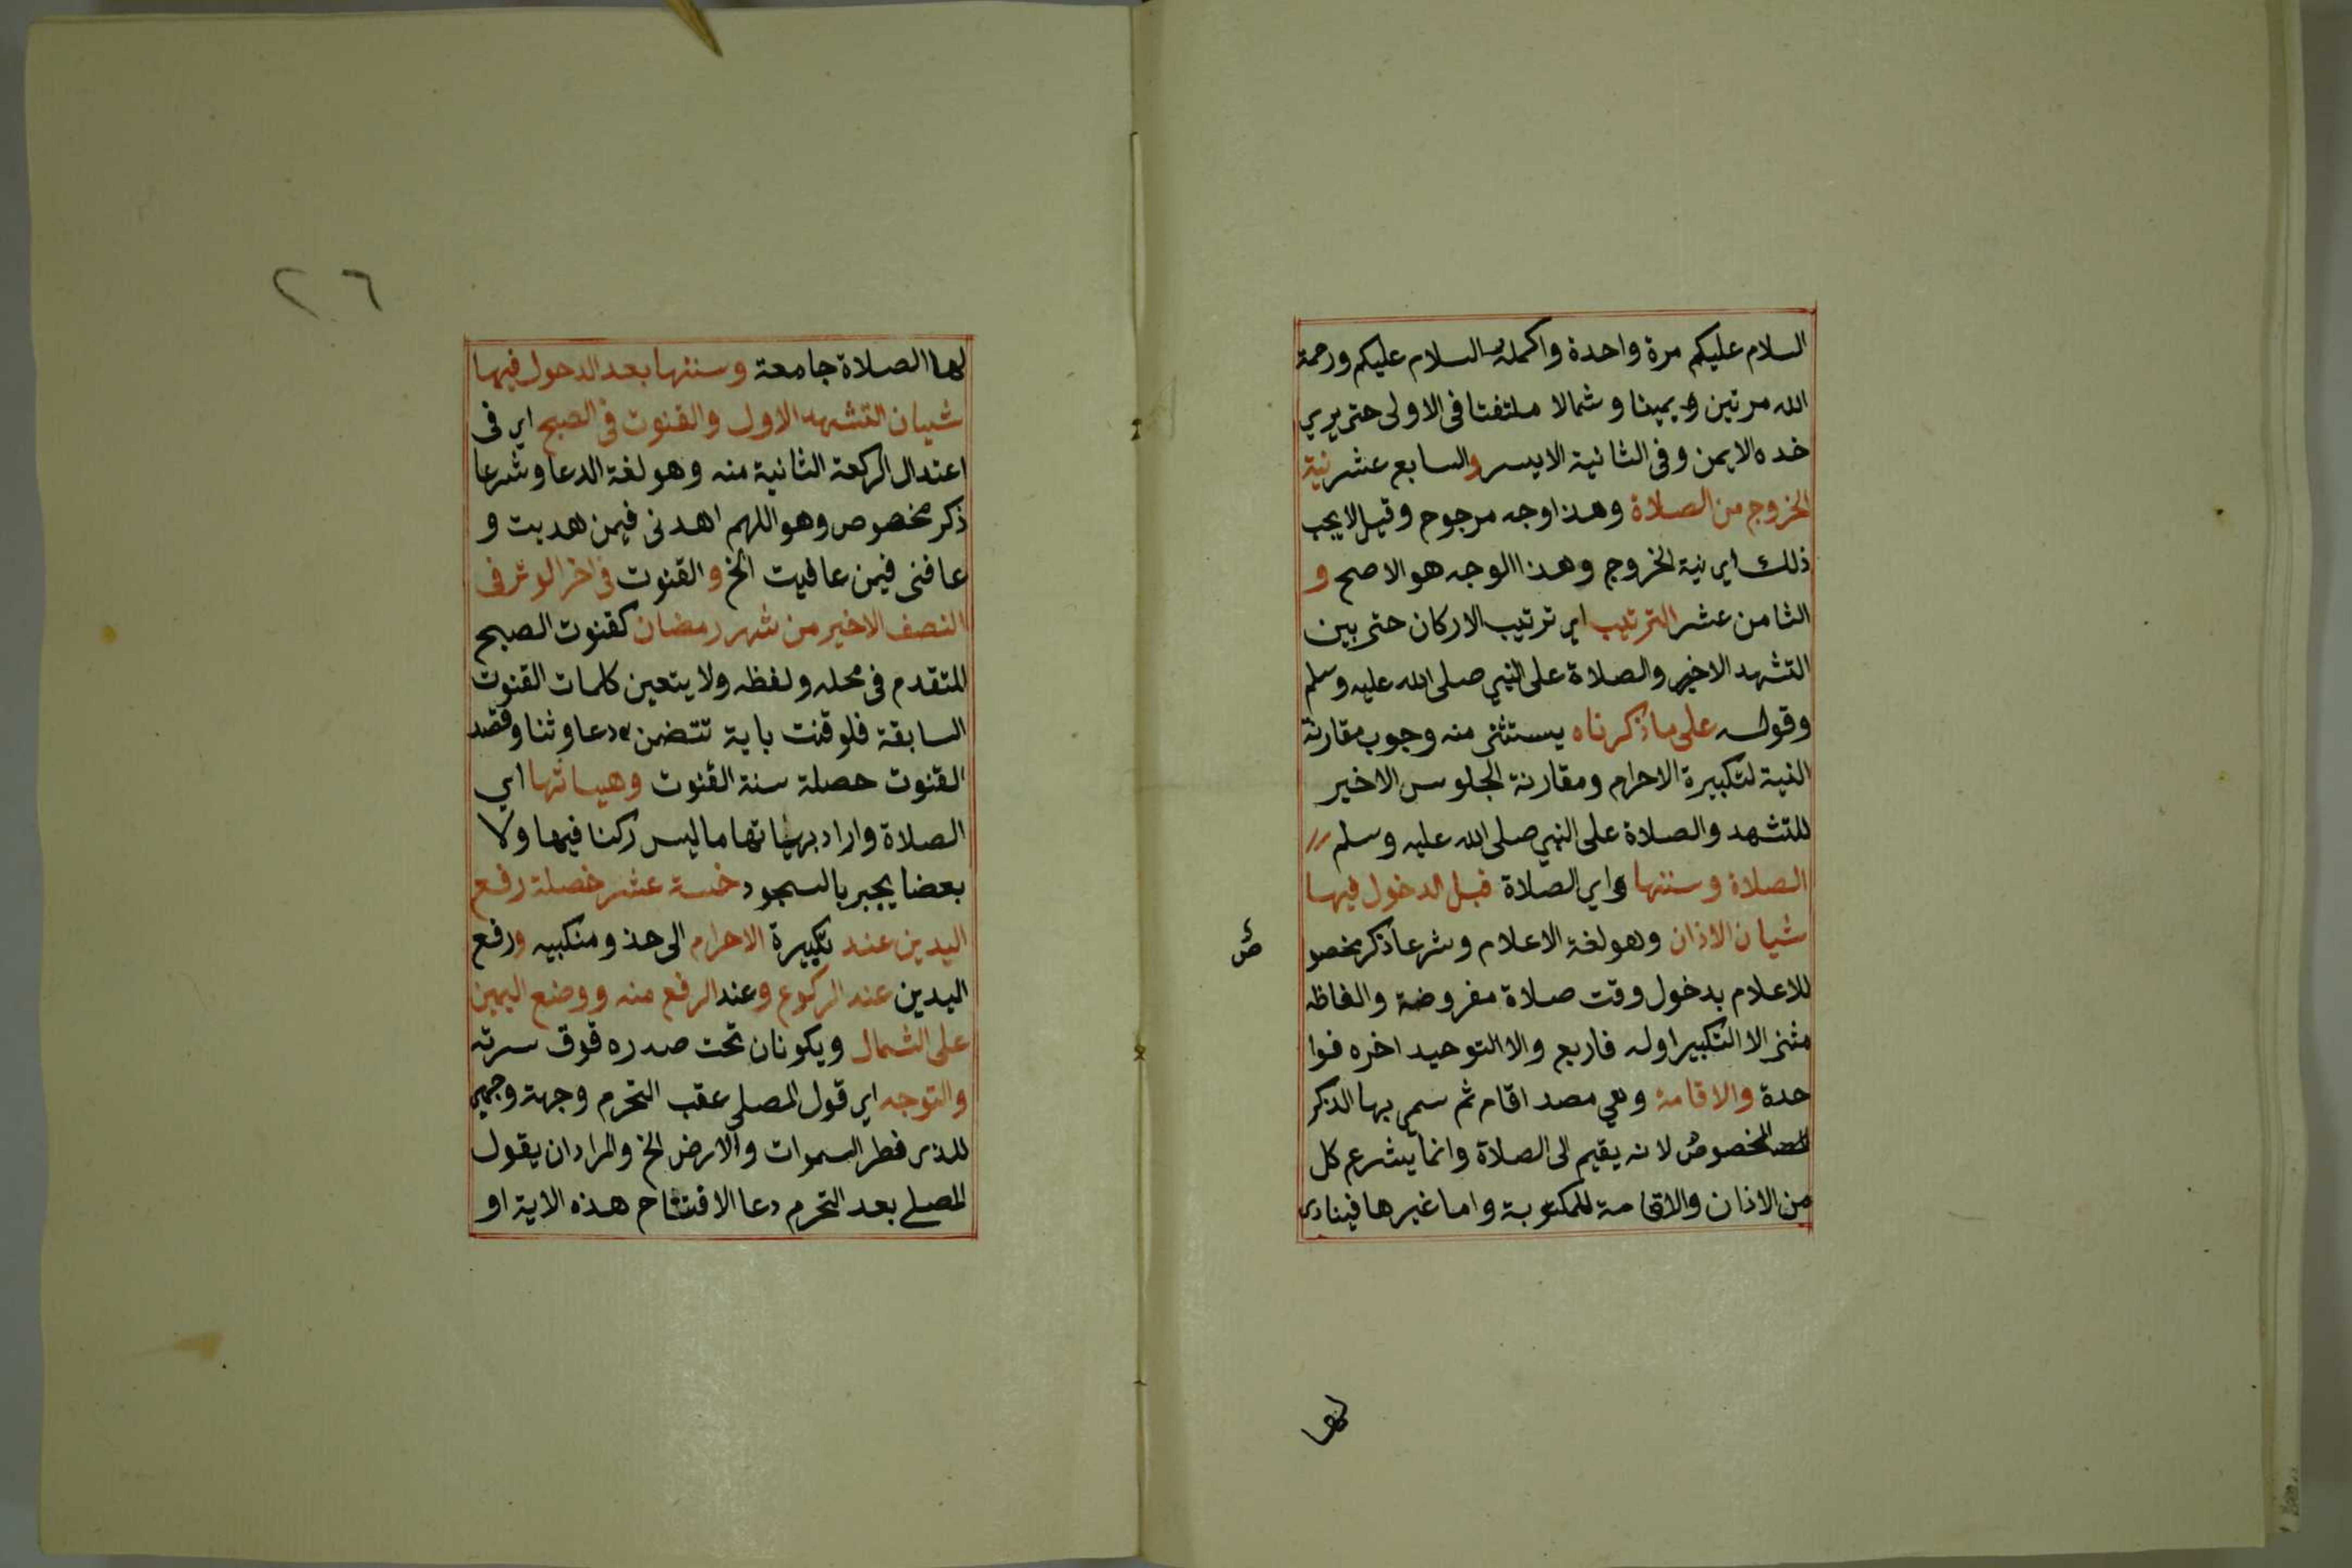 السلام عليكم مرة واحدة واكمله السلام عليكم ورحمة
الله مرتين ويمينا وشمالا ملتفتا فى الاولى حتى يري
خده الايمن وفى الثانية الايسر والسابع عشر نية
الخروج من الصلاة وهذا وجه مرجوح وقيل لايجب
ذلك اي نية الخروج وهذا الوجه هو الاصح و
الثامن عشر الترتيب اي ترتيب الاركان حتى بين
التشهد الاخير والصلاة على النبي صلى الله عليه وسلم
وقوله على ما ذكرناه يستثنى منه وجوب مقارنة
النية لتكبيرة الاحرام ومقارنة الجلوس الاخير
للتشهد والصلاة على النبي صلى الله عليه وسلم
الصلاة وسننها واي الصلاة قبل الدخول فيها
شيان الاذان وهو لغة الاعلام وشرعا ذكر مخصو
ص
للاعلام بدخول وقت صلاة مفروضة والفاظه
مثنى الا التكبير اوله فاربع والا التوحيد اخره فوا
حدة والاقامة وهي مصد اقام ثم سمي بها الذكر
المخصوص لانه يقيم الى الصلاة وانما يشرع كل
من الاذان والاقامة للمكتوبة واما غيرها فينادى
لها
٢٦
لها الصلاة جامعة وسننها بعد الدحول فيها
شيان التشهد الاول والقنوت فى الصبح اي فى
اعتدال الركعة الثانية منه وهو لغة الدعا وشرعا
ذكر مخصوص وهو اللهم اهدنى فيمن هديت و
عافنى فيمن عافيت الخ والقنوت فى اخر الوتر فى
النصف الاخير من شهر رمضان كقنوت الصبح
المتقدم فى محله ولفظه ولا يتعين كلمات القنوت
السابقة فلو قنت باية تتضمن دعا وثنا وقصد
القنوت حصلة سنة القنوت وهيساتها اي
الصلاة واراد بهياتها ما ليس ركنا فيها ولا
بعضا يجبر بالسجود خمسة عشر خصلة رفع
اليدين عند تكبيرة الاحرام الى حذو منكبيه ورفع
اليدين عند الركوع وعند الرفع منه ووضع اليمين
على الشمال ويكونان تحت صدره فوق سرته
والتوجه اي قول المصلى عقب التحرم وجهت وجهي
للذى فطر السموات والارض الخ والمراد ان يقول
المصلے بعد التحرم دعا الافتتاح هذه الاية او